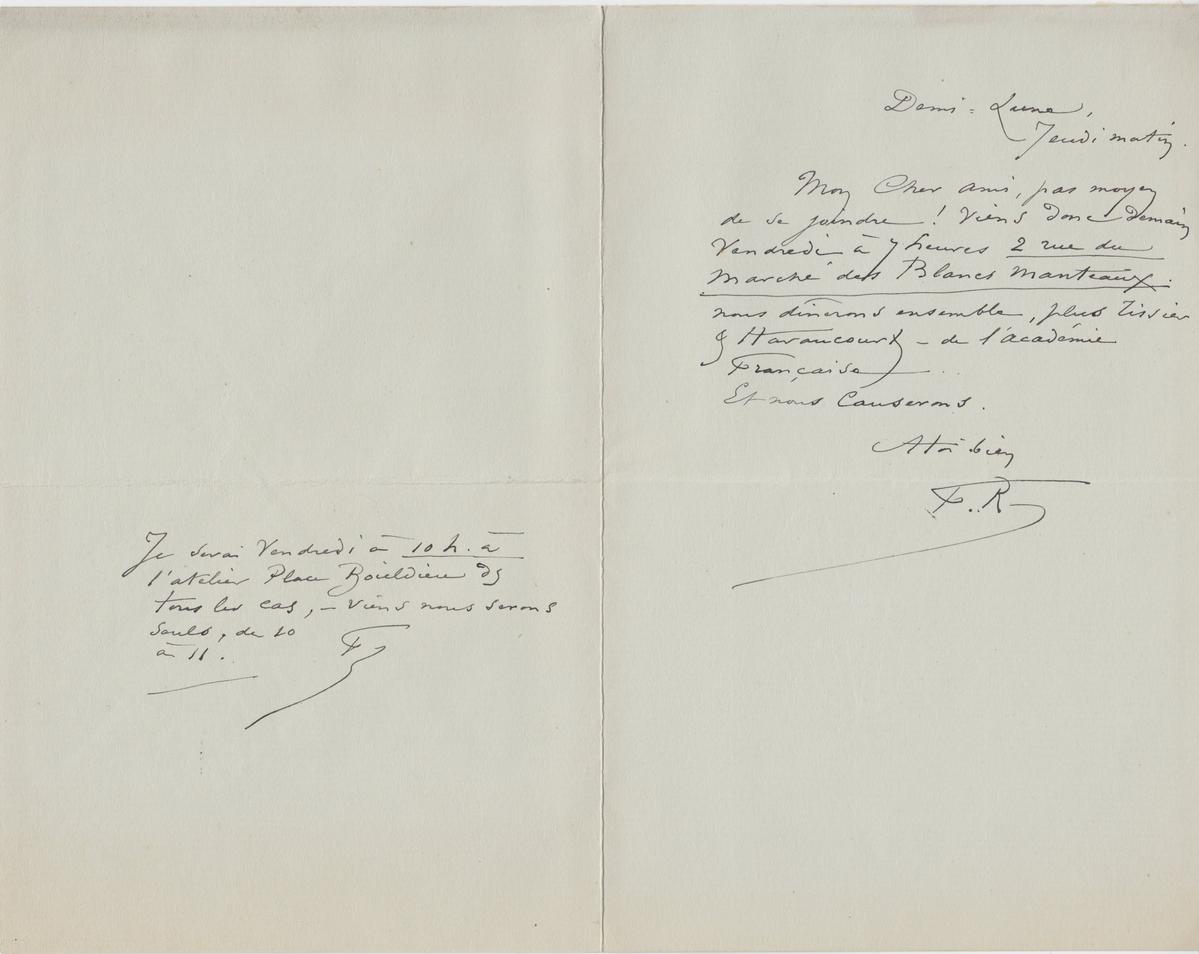 Demi-Lune,
Jeudi matin.
Mon Cher ami, pas moyen
de se joindre ! Viens donc Demain
Vendredi à 7 heures 2 rue du
marché des Blancs manteaux.
nous dinerons ensemble, plus Tissier
& Haraucourt - de l'académie
Française ...
Et nous Causerons.
A toi bien
F. R
Je serai Vendredi à 10 h. à
l'atelier Place Boieldieu ds
tous les cas, - viens nous serons
seuls, de 10
à 11.
F